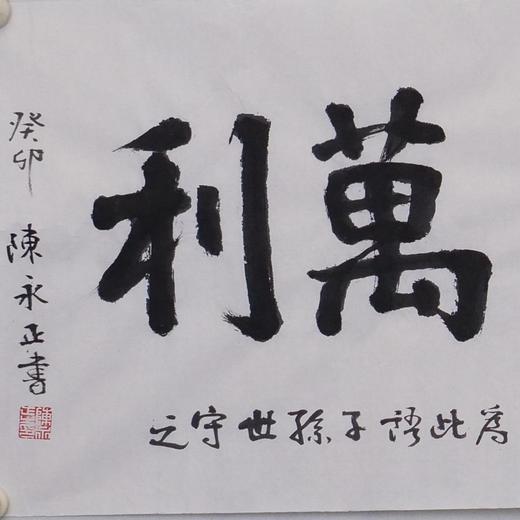 萬利
為此語子孫世守之
癸卯 陳永正書